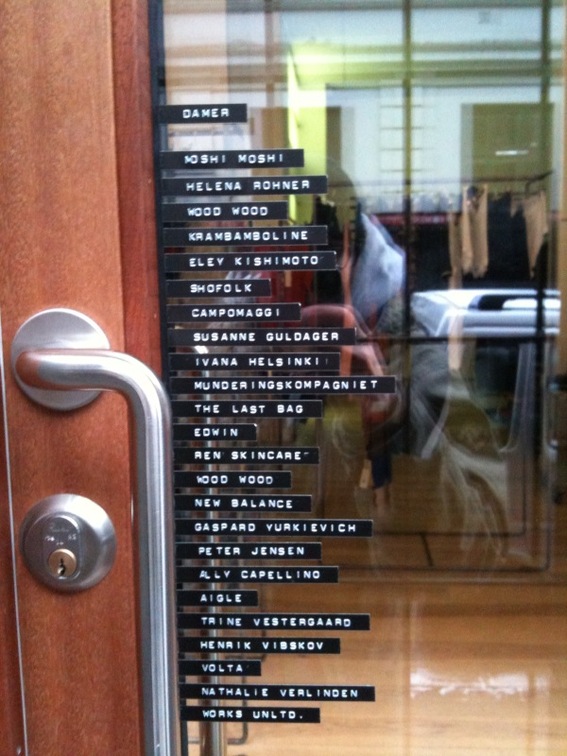 DAMER
MOSHI MOSHI
HELENA ROHNER
WOOD WOOD
KRAMBAMBOLINE
ELEY KISHIMOTO
SHOFOLK
CAMPOMAGGI
SUSANNE GULDAGER
IVANA HELSINKI
MUNDERINGSKOMPAGNIET
THE LAST BAG
EDWIN
REN SKINCARE
WOOD WOOD
NEW BALANCE
GASPARD YURKIEVICH
PETER JENSEN
ALLY CAPELLINO
AIGLE
TRINE VESTERGAARD
HENRIK VIBSKOV
VOLTA
NATHALIE VERLINDEN
WORKS UNLTD.